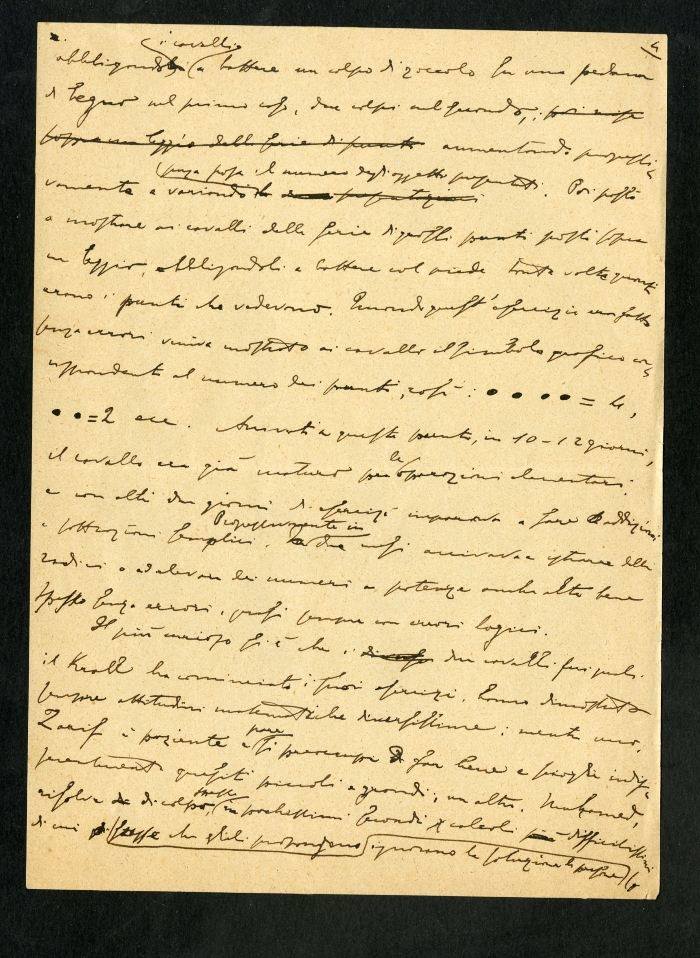 4
i cavalli
abbligandoli a battere un colpo di zoccolo su una pedana
di legno nel primo caso, due colpi nel secondo, poi mise
sopra un leggio delle serie di punti aumentando progressi-
senza posa il numero degli oggetti presentati. Poi passò
vamente e variando le
a mostrare ai cavalli delle serie di grossi punti posti sopra
un leggio, abbligandoli a battere col piede tante volte quanti
erano i punti che vedevano. Quando quest'esercizio era fatto
senza errori veniva mostrato ai cavalli il simbolo grafico cor-
rispondente al numero dei punti, così: • • • • = 4,
• • = 2 ecc. Arrivati a questo punto, in 10-12 giorni,
il cavallo era già maturo per le operazioni elementari.
e con altri due giorni di esercizi imparava a fare addizioni
Progressivamente in
e sottrazioni semplici. due mesi arrivava a estrarre delle
radici o ad elevare dei numeri a potenze anche alte bene
spesso senza errori, quasi sempre con errori logici.
Il più curioso si è che i due cavalli sui quali
il Krall ha cominciato i suoi esercizi, hanno dimostrato
sempre attitudini matematiche diversissime: mentre uno,
pare
Zarif è paziente e si preoccupa di far bene e scioglie indif-
ferentemente quesiti piccoli e grandi, un altro, Muhamed,
spesso
risolve di colpo, in pochissimi secondi calcoli più difficilissimi
di cui che gli propongono ignorano la soluzione le persone